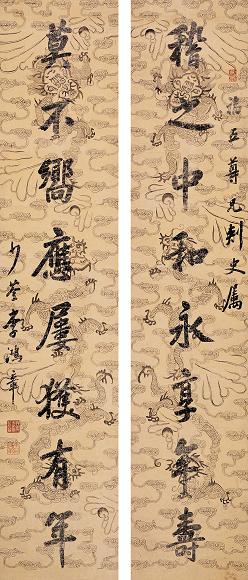 稽之中和永享年壽
治五尊兄刺史属
莫不嚮應屢獲有年
少荃李鴻章